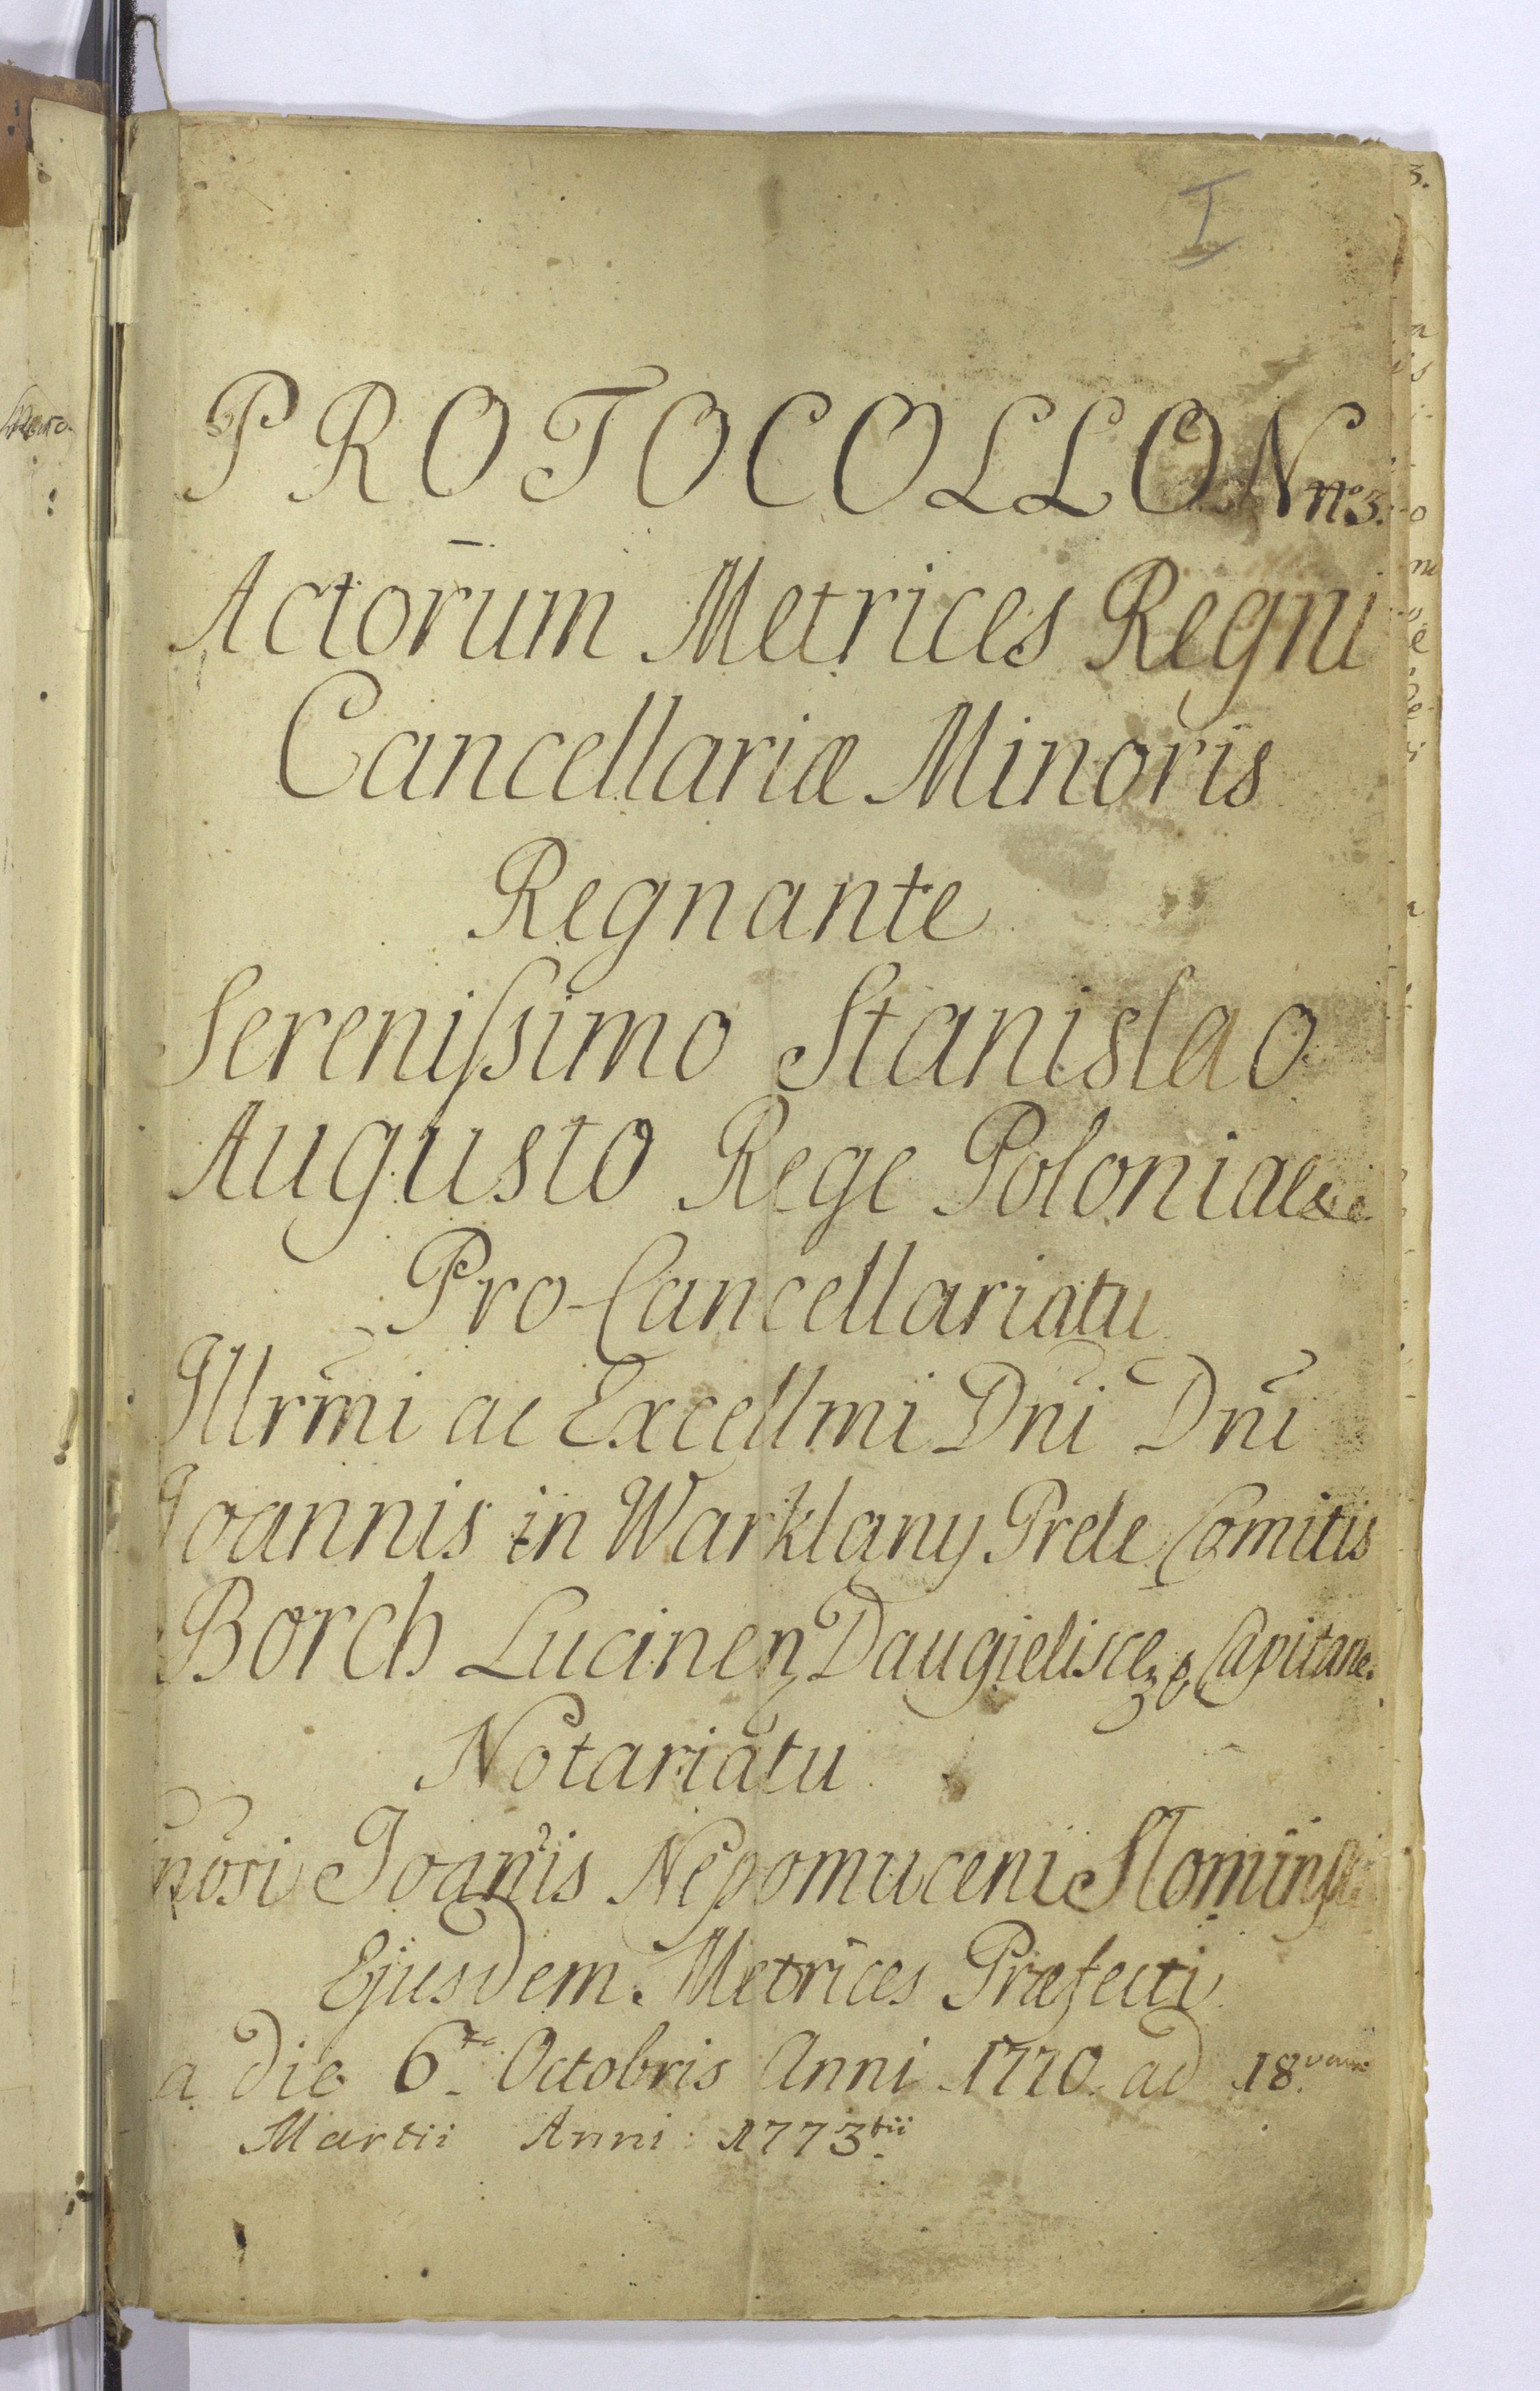 I
PROTOCOLLON nº3.
Actorum Metrices Regni
Cancellariæ Minoris
Regnante
Serenißimo Stanislao
Augusto Rege Poloniae &c
Pro-Cancellariatu
Illrm̃i ac Excellmi Dñi Dñi
Joannis in Warklany Prele Comitis
Borch Lucinen, Daugielisce, & Capitane.
Notariatu
Joañis Nepomuceni Słominski
Ejusdem Metrices Præfecti
a die 6ta Octobris Anni 1770. ad 18vam
Martii Anni 1773tii